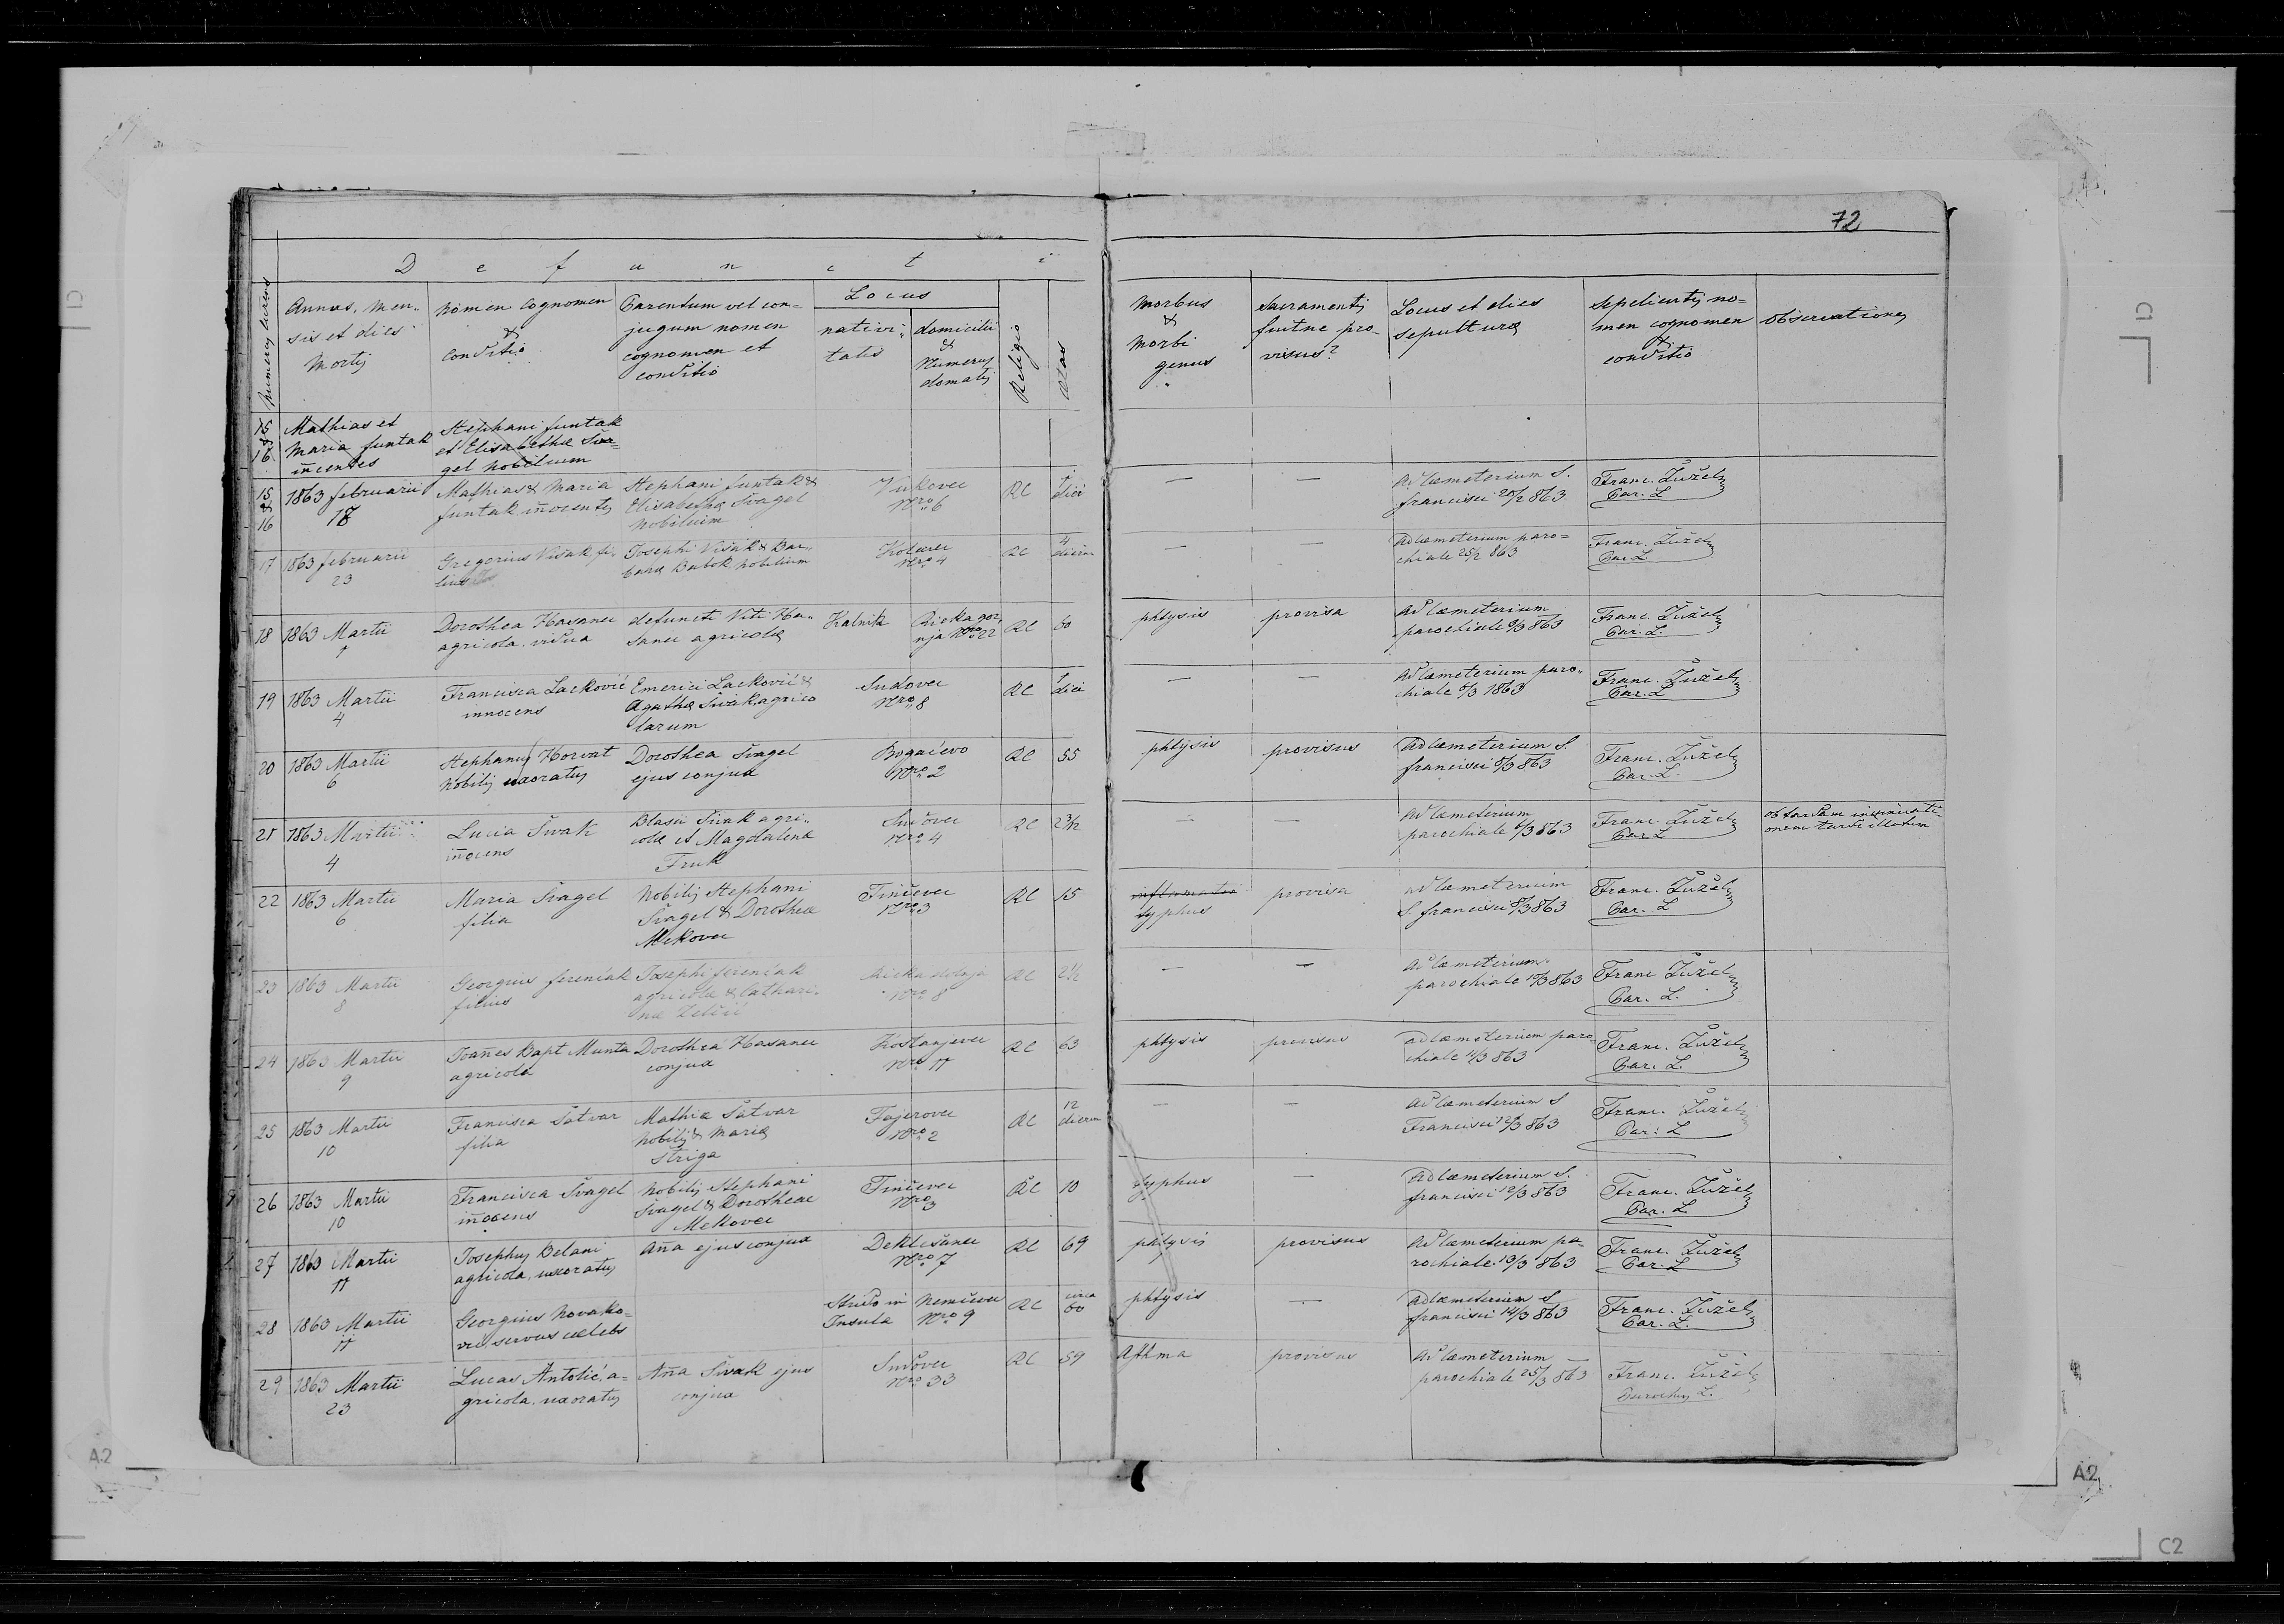 72
Defuncti
Numerus currens
Annus, men-
sis et dies
Mortis
Nomen Cognomen
&
conditio
Parentum vel con-
jugum nomen
cognomen et
conditio
Locus
nativi-
tatis
domicilii
&
Numerus
domus
Religio
Ætas
Morbus
&
Morbi
genus
Sacramentis
fuitne pro-
visus?
Locus et dies
sepulturæ
Sepelientis no-
men cognomen
&
conditio
Observationes
15 & 16
Mathias et
Maria Funtak
iñocentes
Stephani Funtak
et Elisabethæ Šva-
gel Nobilium
15 & 16
1863 februarii
18
Mathias & Maria
Funtak iñocentes
Stephani Funtak &
Elisabethæ Švagel
Nobilium
Vukovec
Nro 6
RC
1 diei
—
—
Ad Cæmeterium S.
francisci 20/2 863
Franc. Žužel
Par. L.
17
1863 februarii
23
Gregorius Višak fi-
lius
Josephi Višak & Bar-
baræ Babok Nobilium
Nro 4
RC
4 dierum
—
—
Ad Cæmeterium paro-
chiale 25/2 863
Franc. Žužel
Par. L.
18
1863 Martii
1
Dorothea Hasanec
agricola, vidua
defuncti Viti Ha-
sanec agricolæ
Kalnik
Rieka gor-
nja Nro 22
RC
50
phtysis
provisa
Ad Cæmeterium
parochiale 3/3 863
Franc. Žužel
Par. L.
19
1863 Martii
4
Francisca Lacković
innocens
Emerici Lacković &
Agathæ Švak agrico
larum
Sudovec
Nro 8
RC
1 diei
—
—
Ad Cæmeterium paro-
chiale 6/3 1863
Franc. Žužel
Par. L.
20
1863 Martii
6
Stephanus Horvat
Nobilis uxoratus
Dorothea Švagel
ejus conjux
Bogačevo
Nro 2
RC
55
phtysis
provisus
Ad Cæmeterium S.
francisci 8/3 863
Franc. Žužel
Par. L.
21
1863 Martii
4
Lucia Švak
iñocens
Blasii Švak agri-
colæ et Magdalenæ
Fruk
Sudovec
Nro 4
RC
2 3/12
—
—
Ad Cæmeterium
parochiale 6/3 863
Franc. Žužel
Par. L.
ob tardam insinuati-
onem tarde illatum
22
1863 Martii
6
Maria Švagel
filia
Nobilis Stephani
Švagel & Dorotheæ
Mekovec
Finčevec
Nro 3
RC
15
typhus
provisa
Ad Cæmeterium
S. francisci 8/3 863
Franc. Žužel
Par. L.
23
1863 Martii
8
Georgius Ferenčak
filius
Josephi Ferenčak
agricolæ & Cathari-
næ
Rieka dolnja
Nro 8
RC
2 1/2
—
—
Ad Cæmeterium
parochiale 10/3 863
Franc. Žužel
Par. L.
24
1863 Martii
9
Joañes Bapt Munta
agricola
Dorothea Hasanec
conjux
Kostanjevec
Nro 11
RC
63
phtysis
provisus
ad Cæmeterium paro-
chiale 11/3 863
Franc. Žužel
Par. L.
25
1863 Martii
10
Francisca Šatvar
filia
Mathiæ Šatvar
Nobilis & Mariæ
Striga
Fajerovec
Nro 2
RC
12 dierum
—
—
Ad Cæmeterium S
Francisci 12/3 863
Franc. Žužel
Par. L.
26
1863 Martii
10
Francisca Švagel
iñocens
Nobilis Stephani
Švagel & Dorotheæ
Mekovec
Finčevec
Nro 3
RC
10
typhus
—
Ad Cæmeterium S.
francisci 12/3 863
Franc. Žužel
Par. L.
27
1863 Martii
11
Josephus Belani
agricola, uxoratus
Aña ejus conjux
Deklešanec
Nro 7
RC
69
phtysis
provisus
Ad Cæmeterium pa-
rochiale 13/3 863
Franc. Žužel
Par. L.
28
1863 Martii
11
Georgius Novako-
vić, servus cælebs
in
Insula
Nemčevec
Nro 9
RC
circa
60
phtysis
—
Ad Cæmeterium S
francisci 14/3 863
Franc. Žužel
Par. L.
29
1863 Martii
23
Lucas Antolić, a-
gricola, uxoratus
Aña Švak ejus
conjux
Sudovec
Nro 33
RC
59
Asthma
provisus
Ad Cæmeterium
parochiale 25/3 863
Franc. Žužel
Parochus L.
A2
A2
C2